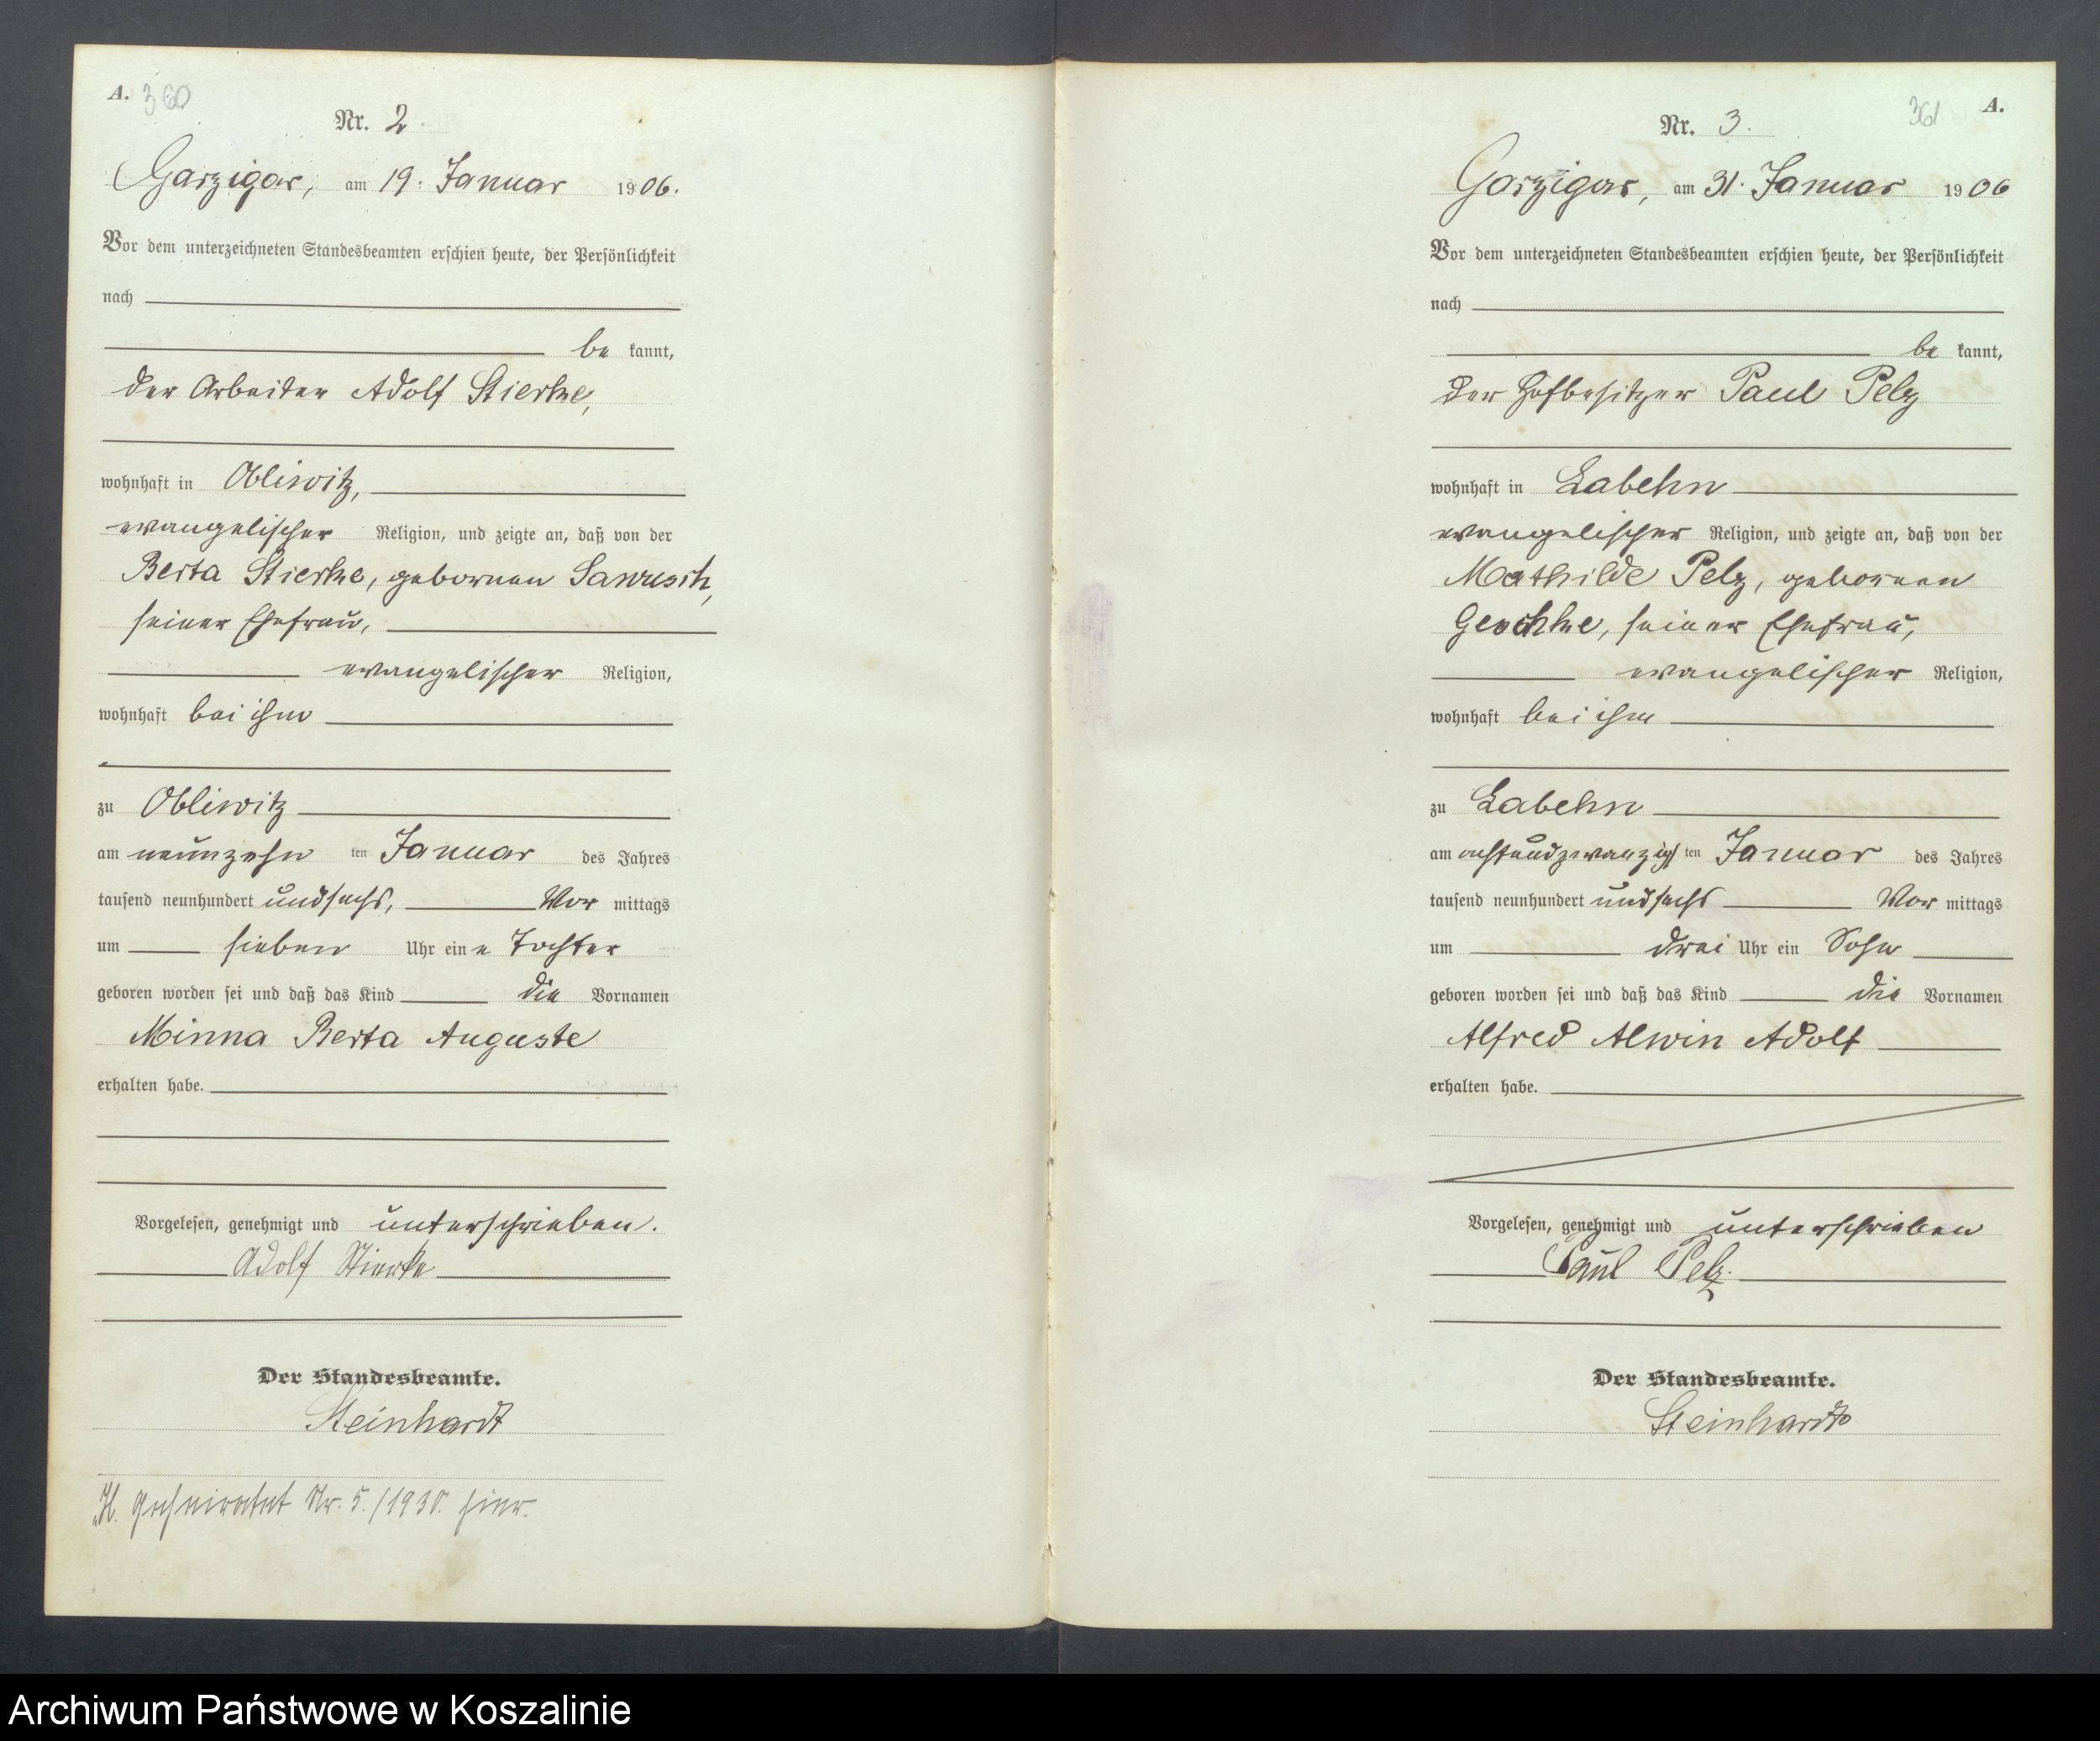 A. 360
Nr. 2
Garzigar, am 19. Januar 1906.
Vor dem unterzeichneten Standesbeamten erschien heute, der Persönlichkeit
nach
be kannt,
der Arbeiter Adolf Stierke,
wohnhaft in Obliwitz,
evangelischer Religion, und zeigte an, daß von der
Berta Stierke, geborenen
seiner Ehefrau,
evangelischer Religion,
wohnhaft bei ihm
zu Obliwitz
am neunzehn ten Januar des Jahres
tausend neunhundert undsechs, Vor mittags
um sieben Uhr ein e Tochter
geboren worden sei und daß das Kind die Vornamen
Minna Berta Auguste
erhalten habe.
Vorgelesen, genehmigt und unterschrieben.
Adolf Stierke
Der Standesbeamte.
Steinhardt
H. geheiratet Nr. 5./1930. hier.
361 A.
Nr. 3.
Garzigar, am 31. Januar 1906
Vor dem unterzeichneten Standesbeamten erschien heute, der Persönlichkeit
nach
be kannt,
der Hofbesitzer Paul Pelz
wohnhaft in Labehn
evangelischer Religion, und zeigte an, daß von der
Mathilde Pelz, geborenen
seiner Ehefrau,
evangelischer Religion,
wohnhaft bei ihm
zu Labehn
am achtundzwanzigs ten Januar des Jahres
tausend neunhundert undsechs Vor mittags
um drei Uhr ein Sohn
geboren worden sei und daß das Kind die Vornamen
Alfred Alwin Adolf
erhalten habe.
Vorgelesen, genehmigt und unterschrieben
Paul Pelz.
Der Standesbeamte.
Steinhardt
Archiwum Państwowe w Koszalinie